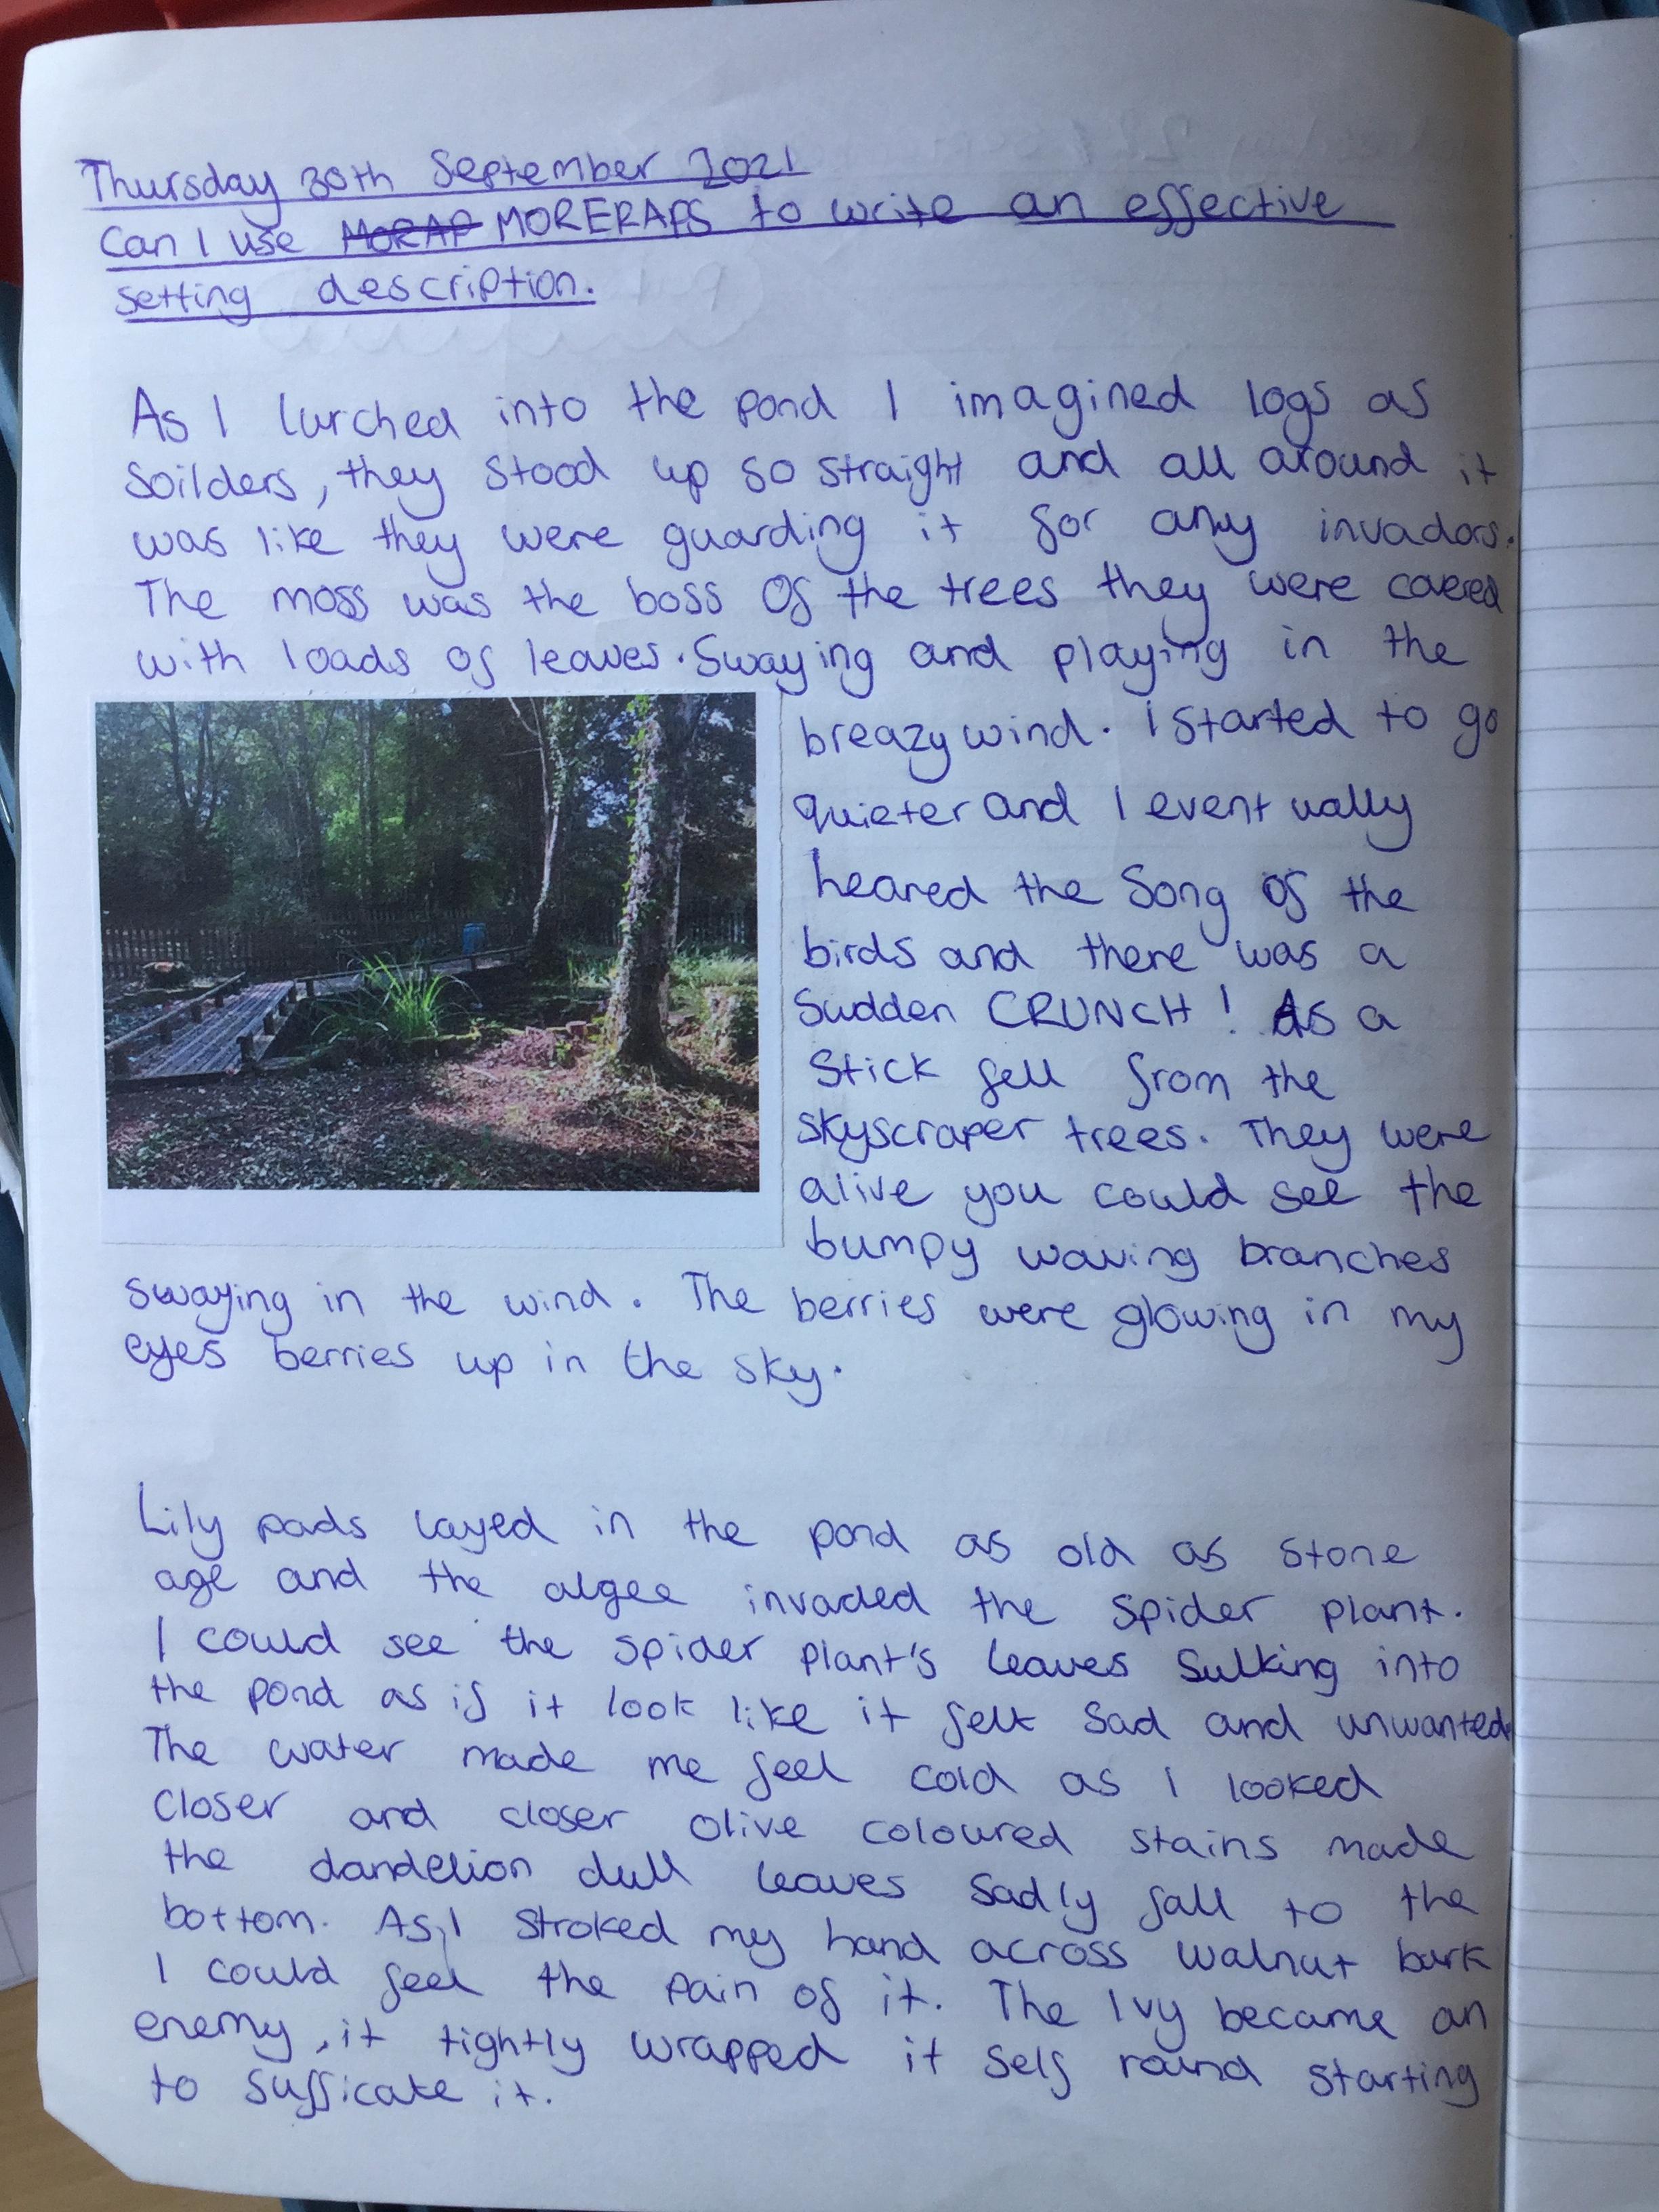 Thursday 30th September 2021
Can I use MORAP MORERAPS to write an effective
setting description.
As I lurched into the pond I imagined logs as
soilders, they stood up so straight and all around it
was like they were guarding it for any invadors.
The moss was the boss of the trees they were covered
with loads of leaves. Swaying and playing in the
breazy wind. I started to go
quieter and I eventually
heared the song of the
birds and there was a
sudden CRUNCH! As a
stick fell from the
skyscraper trees. They were
alive you could see the
bumpy waving branches
swaying in the wind. The berries were glowing in my
eyes berries up in the sky.
Lily pads layed in the pond as old as stone
age and the algee invaded the spider plant.
I could see the spider plant's leaves sulking into
the pond as if it look like it felt sad and unwanted
The water made me feel cold as I looked
closer and closer olive coloured stains made
the dandelion dull leaves sadly fall to the
bottom. As I stroked my hand across walnut bark
I could feel the pain of it. The Ivy became an
enemy, it tightly wrapped it self round starting
to sufficate it.